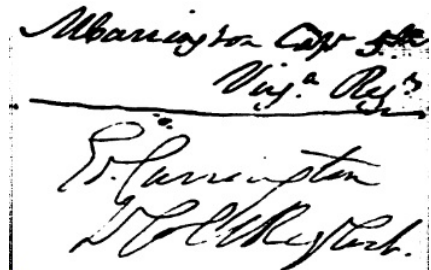 MCarrington Capt 5th
Virg.a Reg.t
Ed. Carrington
L Col